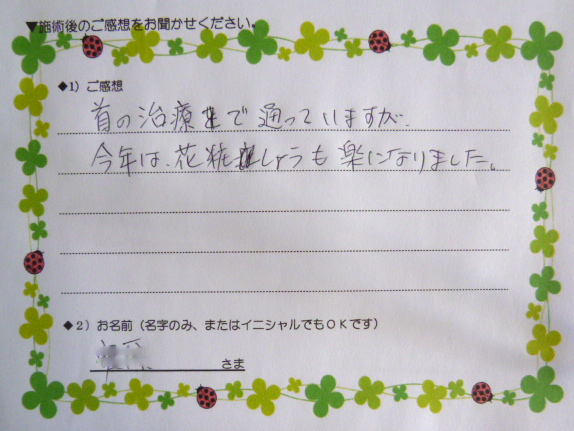 ▼施術後のご感想をお聞かせください。
◆1）ご感想
首の治療で通っていますが、
今年は、花粧しょうも楽になりました。
◆2）お名前（名字のみ、またはイニシャルでもOKです）
さま